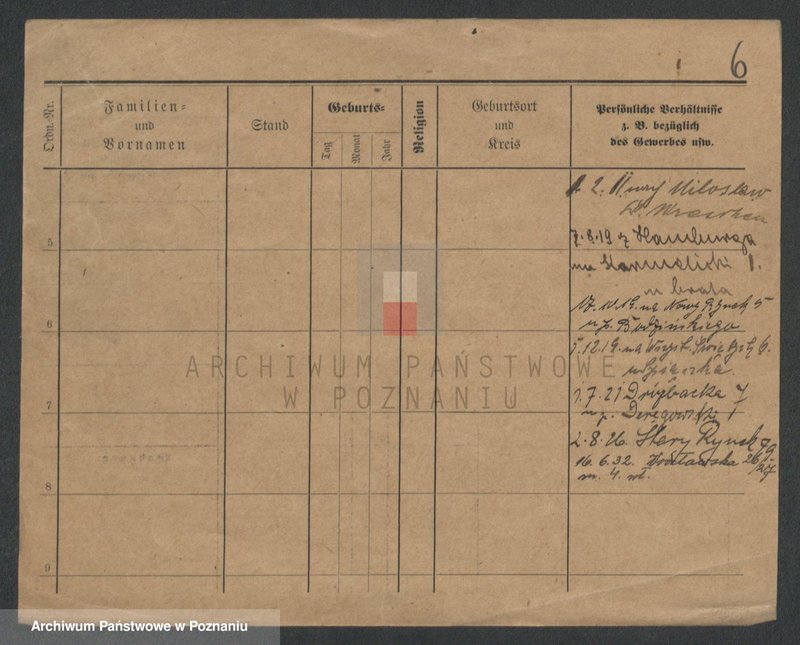 6
Ordn.-Nr.
Familien-
und
Vornamen
Stand
Geburts-
Tag
Monat
Jahr
Religion
Geburtsort
und
Kreis
Persönliche Verhältnisse
z. B. bezüglich
des Gewerbes usw.
2. Miloslaw
Kr. Wreschen
5
7.8.19 z Hamburga
na 1.
u brata
17. 19. na Nowy Rynek 5
6
u p. Bodzińskiego
12.19. na 6.
ARCHIWUM PAŃSTWOWE
W POZNANIU
1.7.21 Drójbacka 7
7
u p.
2.8.26. Stary Rynek 79
16.6.32. Wrocławska 26/27
8
m. 4. wł.
9
Archiwum Państwowe w Poznaniu